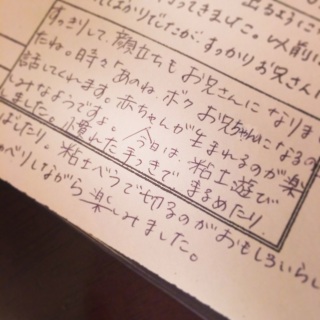 出るように
ってきました。以前は
ばかりでしたが、すっかりお兄さん
すっきりして、顔立ちもお兄さんになりま
たね。時々「あのね、ボク お兄ちゃんになるの
話してくれます。赤ちゃんが生まれるのが楽
しみなようですよ。今日は、粘土遊び
しました。小慣れた手つきで、まるめたり
ばしたり。粘土べらで切るのがおもしろいらし
ゃべりしながら楽しみました。